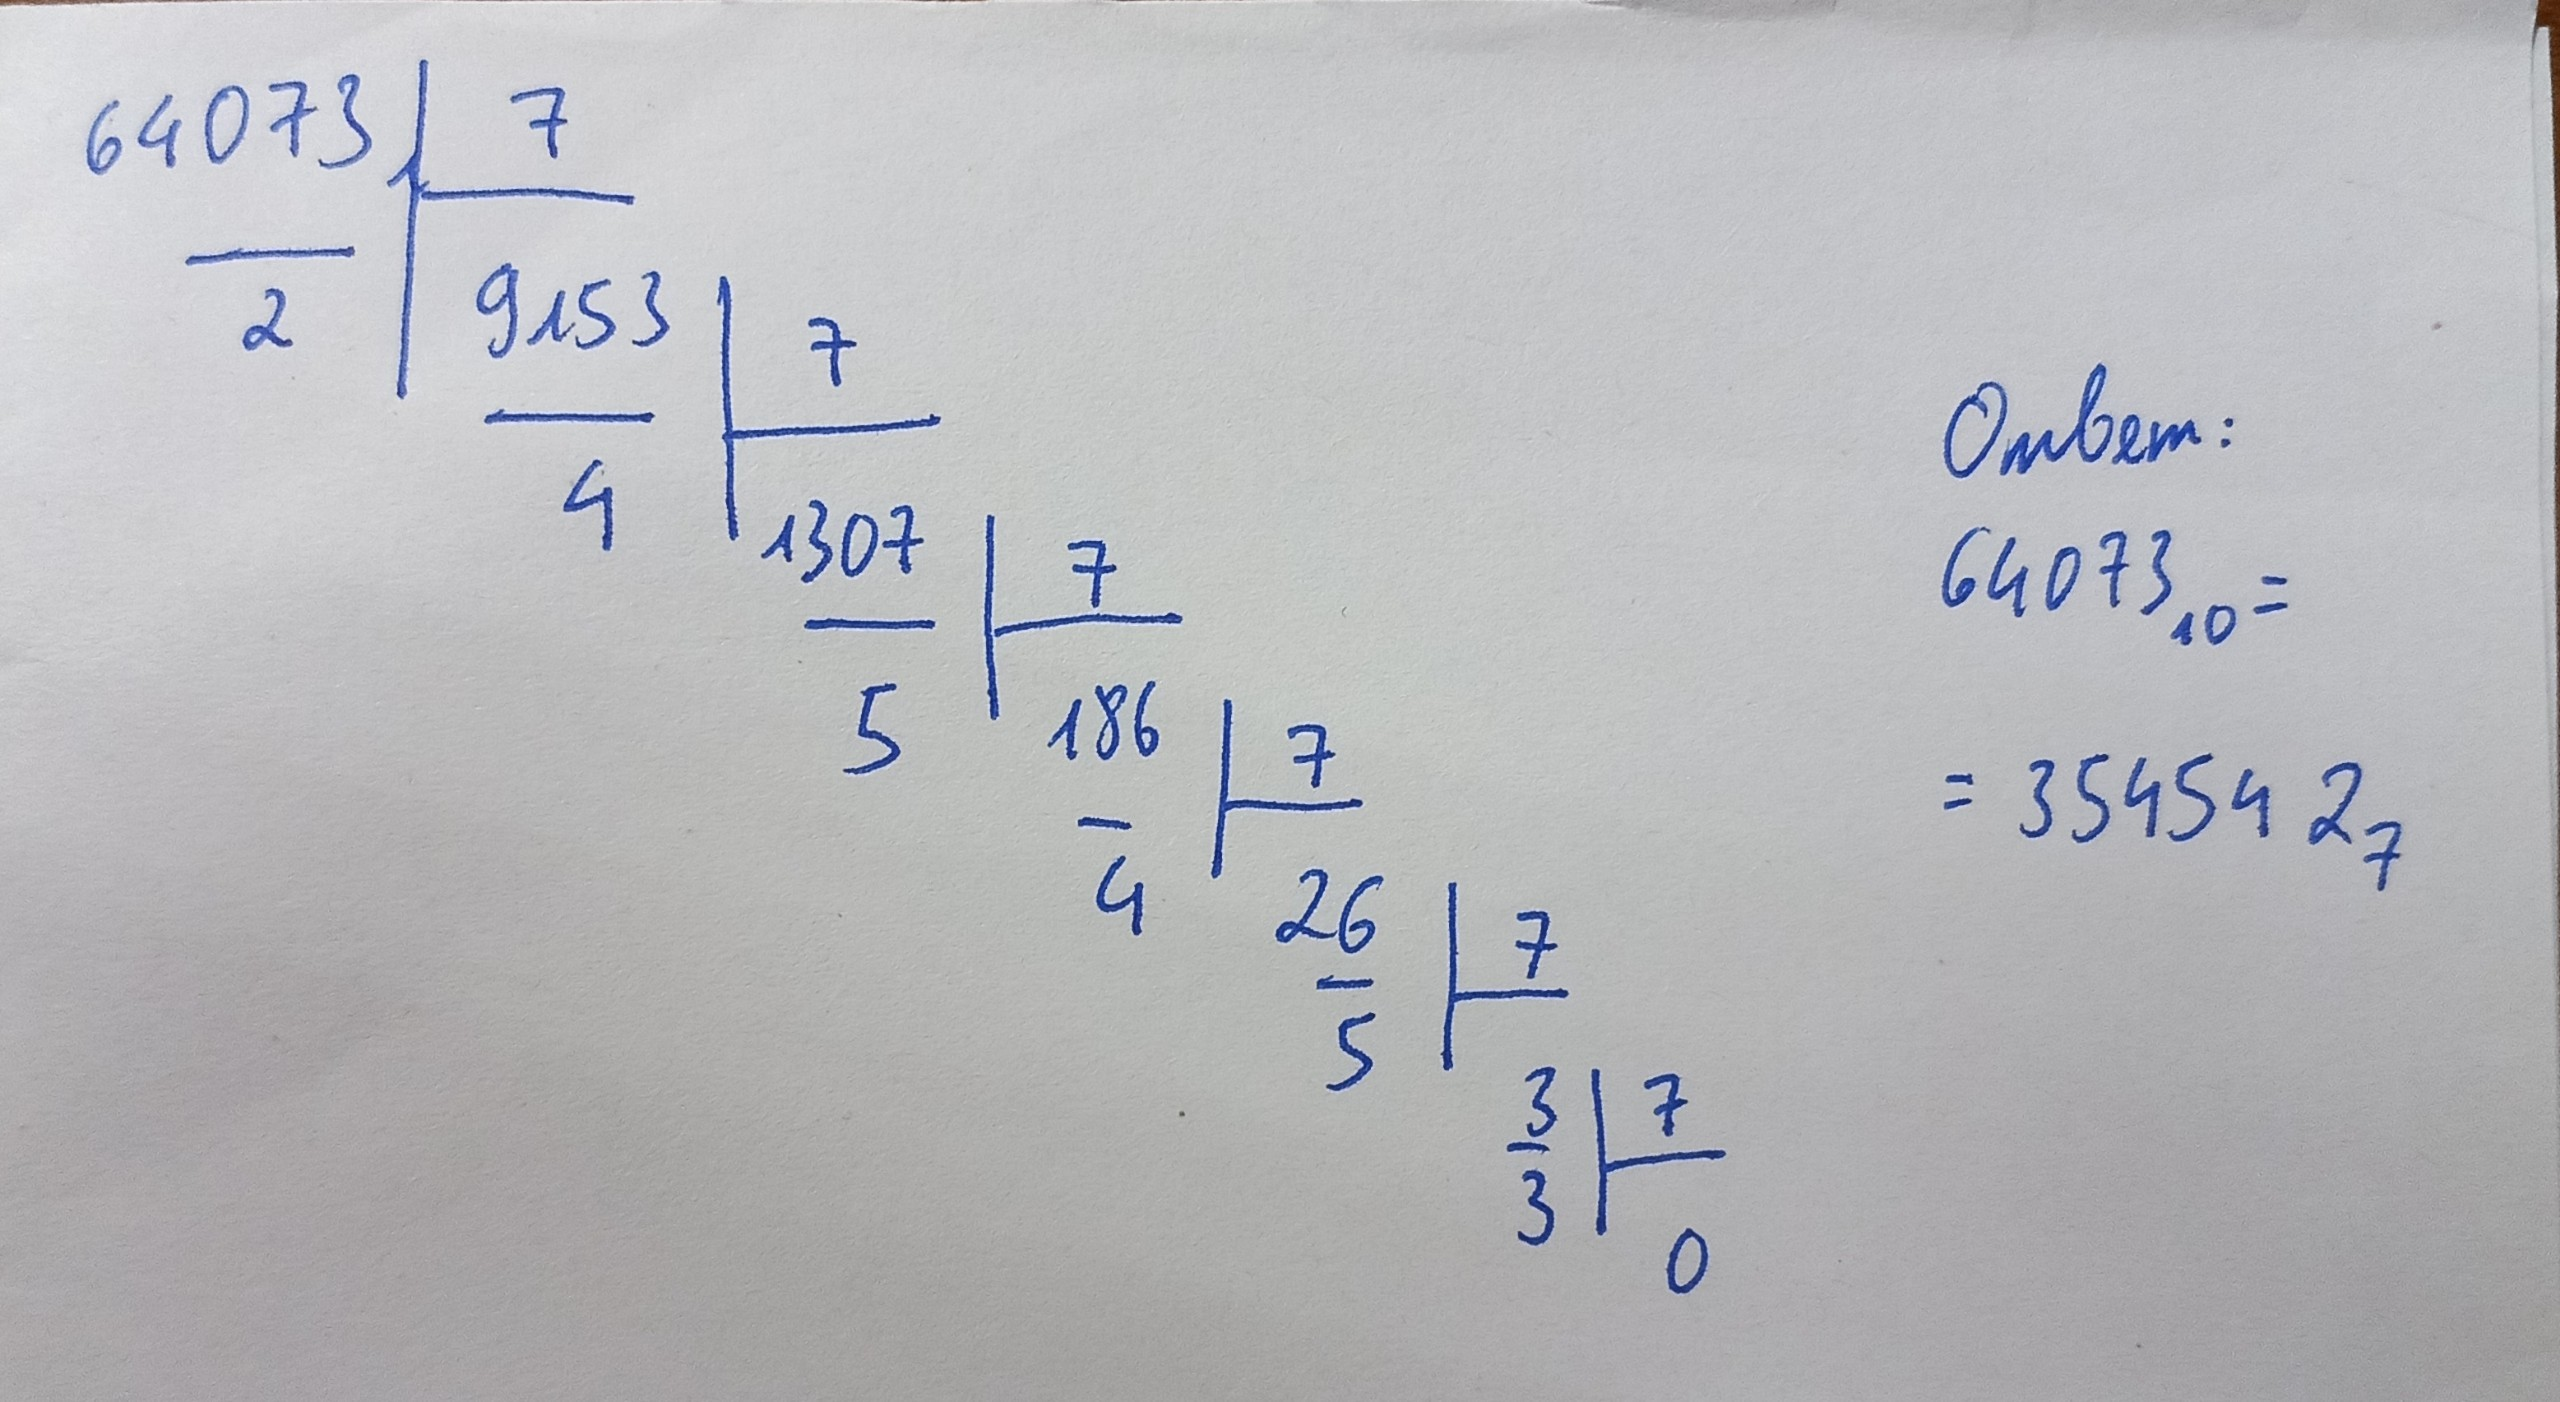 64073 7
2 9153 7
4 1307 7
5 186 7
4 26 7
5 3 7
3 0
Ответ:
64073₁₀ =
= 354542₇